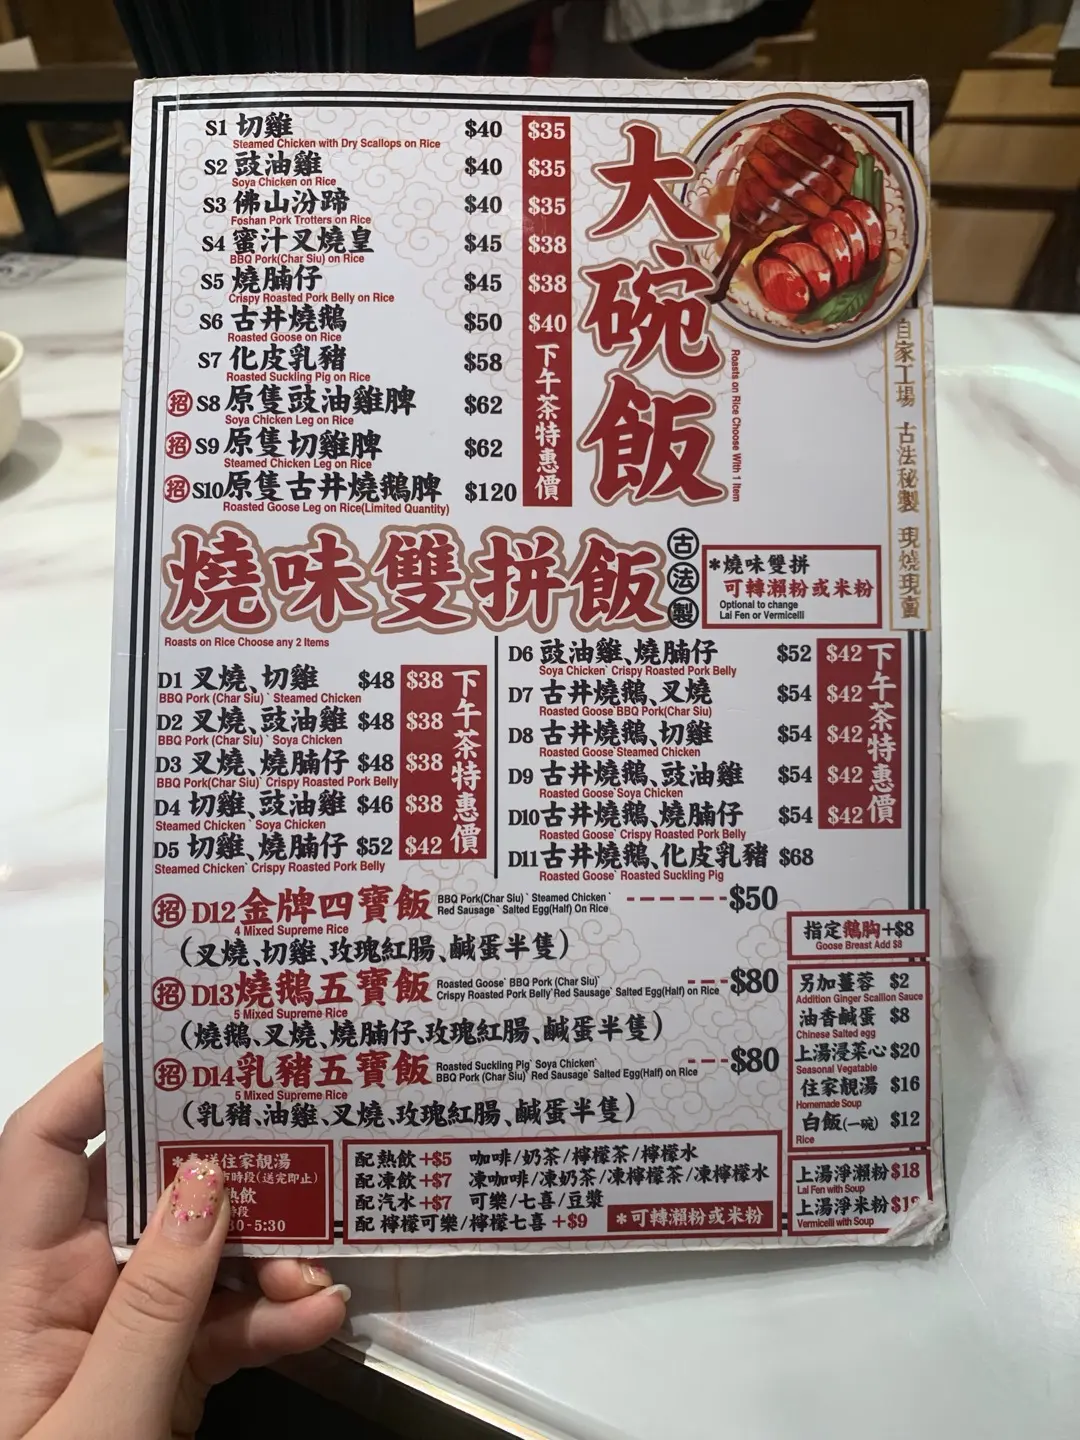 S1 切雞 $40 $35
Steamed Chicken with Dry Scallops on Rice
S2 豉油雞 $40 $35
Soya Chicken on Rice
S3 佛山汾蹄 $40 $35
Foshan Pork Trotters on Rice
S4 蜜汁叉燒皇 $45 $38
BBQ Pork(Char Siu) on Rice
S5 燒腩仔 $45 $38
Crispy Roasted Pork Belly on Rice
S6 古井燒鵝 $50 $40
Roasted Goose on Rice
S7 化皮乳豬 $58
Roasted Suckling Pig on Rice
招 S8 原隻豉油雞脾 $62
Soya Chicken Leg on Rice
招 S9 原隻切雞脾 $62
Steamed Chicken Leg on Rice
招 S10 原隻古井燒鵝脾 $120
Roasted Goose Leg on Rice(Limited Quantity)
下午茶特惠價
大碗飯
Roasts on Rice Choose With 1 Item
自家工場 古法秘製 現燒現賣
燒味雙拼飯
古法製
Roasts on Rice Choose any 2 Items
*燒味雙拼
可轉瀨粉或米粉
Optional to change
Lai Fen or Vermicelli
D1 叉燒、切雞 $48 $38
BBQ Pork (Char Siu)` Steamed Chicken
D2 叉燒、豉油雞 $48 $38
BBQ Pork (Char Siu)` Soya Chicken
D3 叉燒、燒腩仔 $48 $38
BBQ Pork(Char Siu)` Crispy Roasted Pork Belly
D4 切雞、豉油雞 $46 $38
Steamed Chicken` Soya Chicken
D5 切雞、燒腩仔 $52 $42
Steamed Chicken` Crispy Roasted Pork Belly
下午茶特惠價
D6 豉油雞、燒腩仔 $52 $42
Soya Chicken` Crispy Roasted Pork Belly
D7 古井燒鵝、叉燒 $54 $42
Roasted Goose`BBQ Pork(Char Siu)
D8 古井燒鵝、切雞 $54 $42
Roasted Goose`Steamed Chicken
D9 古井燒鵝、豉油雞 $54 $42
Roasted Goose`Soya Chicken
D10 古井燒鵝、燒腩仔 $54 $42
Roasted Goose` Crispy Roasted Pork Belly
D11 古井燒鵝、化皮乳豬 $68
Roasted Goose` Roasted Suckling Pig
下午茶特惠價
招 D12 金牌四寶飯 $50
BBQ Pork(Char Siu)` Steamed Chicken`
Red Sausage` Salted Egg(Half) On Rice
4 Mixed Supreme Rice
(叉燒、切雞、玫瑰紅腸、鹹蛋半隻)
招 D13 燒鵝五寶飯 $80
Roasted Goose` BBQ Pork (Char Siu)`
Crispy Roasted Pork Belly`Red Sausage` Salted Egg(Half) on Rice
5 Mixed Supreme Rice
(燒鵝、叉燒、燒腩仔、玫瑰紅腸、鹹蛋半隻)
招 D14 乳豬五寶飯 $80
Roasted Suckling Pig` Soya Chicken`
BBQ Pork (Char Siu)` Red Sausage` Salted Egg(Half) on Rice
5 Mixed Supreme Rice
(乳豬、油雞、叉燒、玫瑰紅腸、鹹蛋半隻)
指定鵝胸+$8
Goose Breast Add $8
另加薑蓉 $2
Addition Ginger Scallion Sauce
油香鹹蛋 $8
Chinese Salted egg
上湯浸菜心 $20
Seasonal Vegatable
住家靚湯 $16
Homemade Soup
白飯(一碗) $12
Rice
上湯淨瀨粉 $18
Lai Fen with Soup
上湯淨米粉
Vermicelli with Soup
送住家靚湯
時段(送完即止)
熱飲
時段
0-5:30
配熱飲+$5 咖啡/奶茶/檸檬茶/檸檬水
配凍飲+$7 凍咖啡/凍奶茶/凍檸檬茶/凍檸檬水
配汽水+$7 可樂/七喜/豆漿
配 檸檬可樂/檸檬七喜 +$9 *可轉瀨粉或米粉